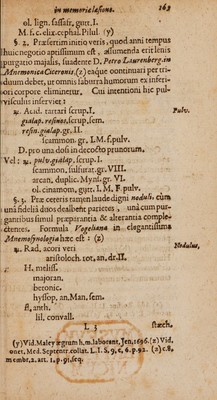 in memoriæ læsione. 163
ol. lign. sassafr, gutt. I.
M. f. c. elix. cephal. Pilul (y)
§ 2. Præsertim initio veris, quod anni tempus
huic negotio aptissimum est, assumenda erit lenis
purgatio majalis, suadente D. Petro Laurenberg. in
Mnemonica Ciceronis, (z) eaque continuari per tri-
duum debet, ut omnis laburra humorum ex inferi-
ori corpore eliminetur. Cui intentioni hic pul-
visculus inserviet:
♃. Acid. tartari scrup. I. Pulv.
gialap. resinos, scrup, sem.
resin. gialap. gr. II.
scammon. gr. I. M. f. pulv.
D. pro una dosi in decocto prunorum.
Vel: ♃. pulv. gialap. scrup. I.
scammon, sulfurat. gr. VIII.
arcan. duplic. Mynf. gr. VI.
ol. cinamom, gutt. I. M. F. pulv.
§. 3. Præ ceteris tamen laude digni noduli, cum
una fidelia duos dealbent parietes, una cum pur-
gantibus simul præparantia & alterantia comple-
ctentes. Formula Vogeliana in elegantissima
Mnemosynologia hæc est: (a)
♃. Rad. acori veri Nodulus,
aristoloch. rot, an, dr. II.
H. meliss.
majoran.
betonic.
hyssop, an. Man. sem.
fl. anth.
lil, convall.
L 3 stœch.
(y) Vid. Maley ægrum h, m. laborant, Jen, 1696. (z) Vid,
oner, Med. Septentr. collat. L. I. S, 9, c, 6. p. 92.
membr, 2. art. 1. p. pi, seq.